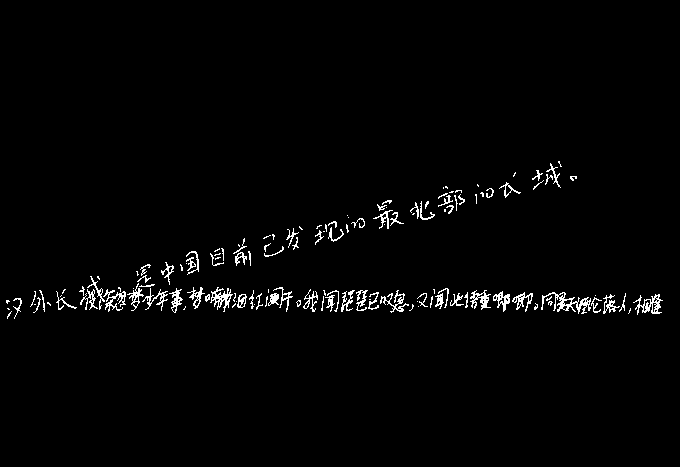 汉外长城，是中国目前已发现的最北部的长城。
夜深忽梦少年事,梦啼妆泪红阑干。我闻琵琶已叹息,又闻此语重唧唧。同是天涯沦落人,相逢